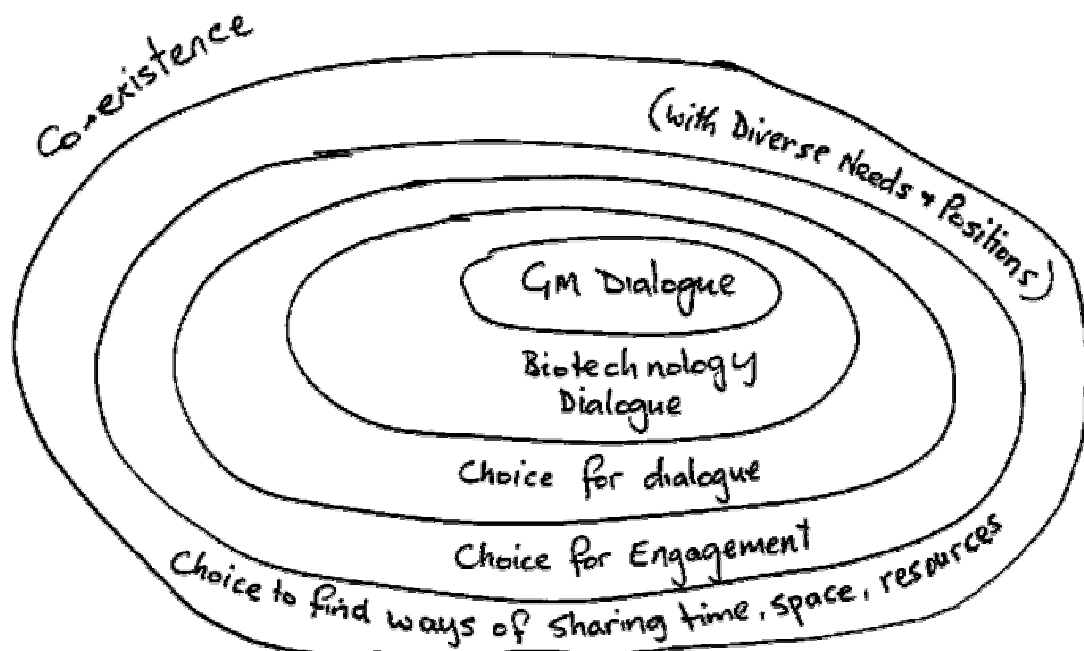 Co-existence
(with Diverse Needs + Positions)
GM Dialogue
Biotechnology
Dialogue
Choice for dialogue
Choice for Engagement
Choice to find ways of sharing time, space, resources